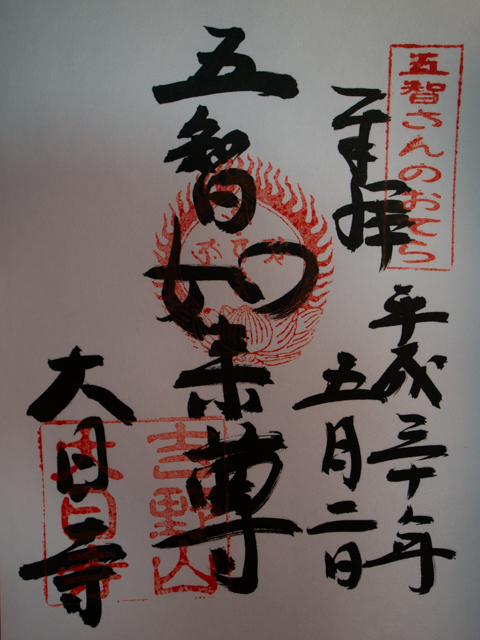 五智さんのおてら
奉拝
平成三十年
五月二日
五智如来尊
吉野山
大日寺
大日寺